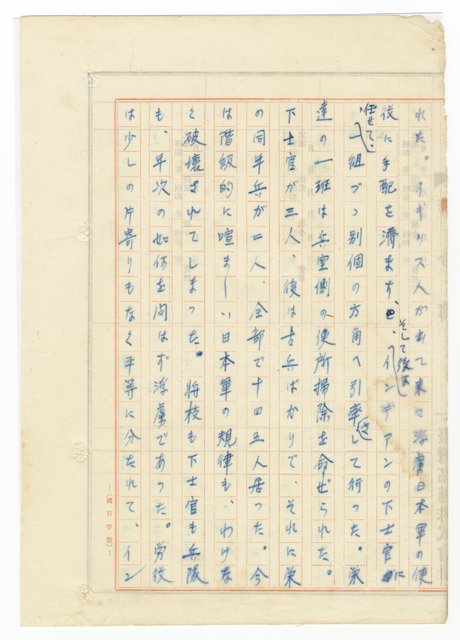 れた。イギリス人が出て来て俘虜日本軍の使
役に手配を濟ます、そして後はインデアンの下士官に
任せて、一組づつ別個の方角へ引率されて行った。栄
達の一班は兵室側の便所掃除を命ぜられた。
下士官が三人、後は古兵ばかりで、それに栄
の同年兵が二人、全部で十四五人居った。今
は階級的に喧ましい日本軍の規律も、わけな
く破壊されてしまった。将校も下士官も兵隊
も、年次の如何を問はず俘虜であった。労役
は少しの片寄りもなく平等に分たれて、イン